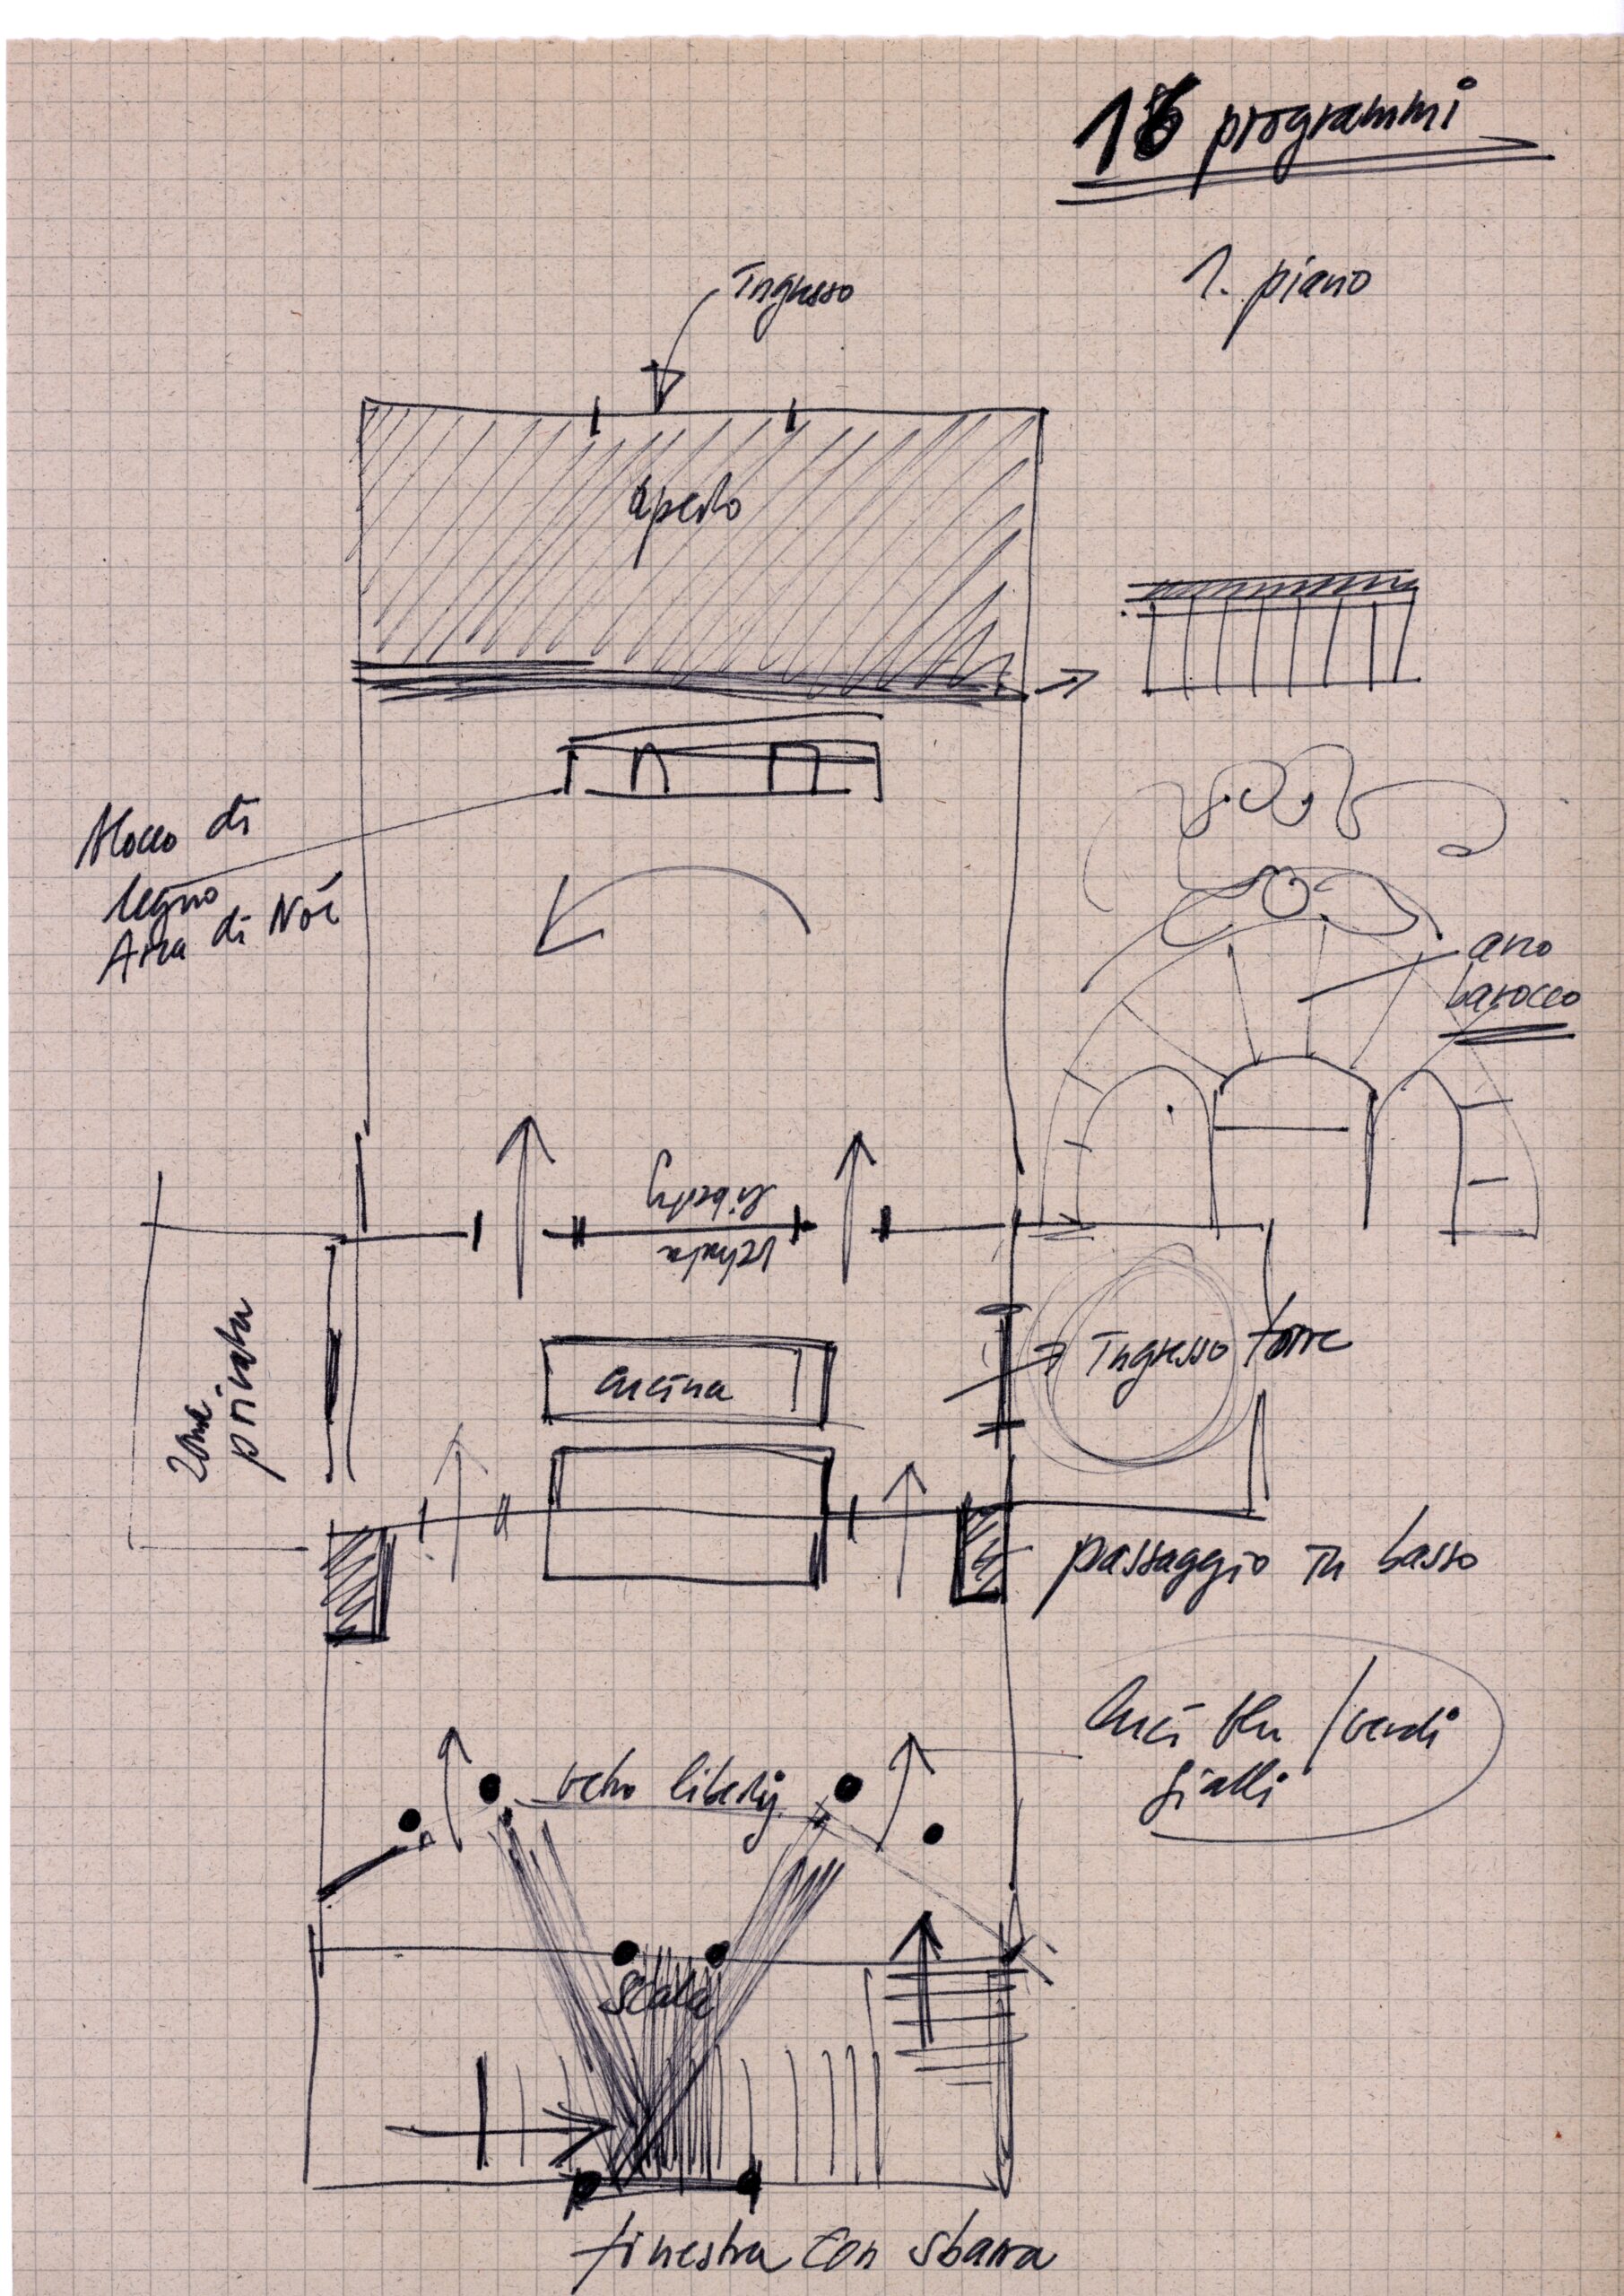 16 programmi
1. piano
Ingresso
aperto
Blocco di
legno
Arca di Noè
arco
barocco
vetrata
liberty
cucina
Ingresso torre
zona
privata
passaggio in basso
Luci blu / verdi
gialli
vetro liberty
scala
finestra con sbarra